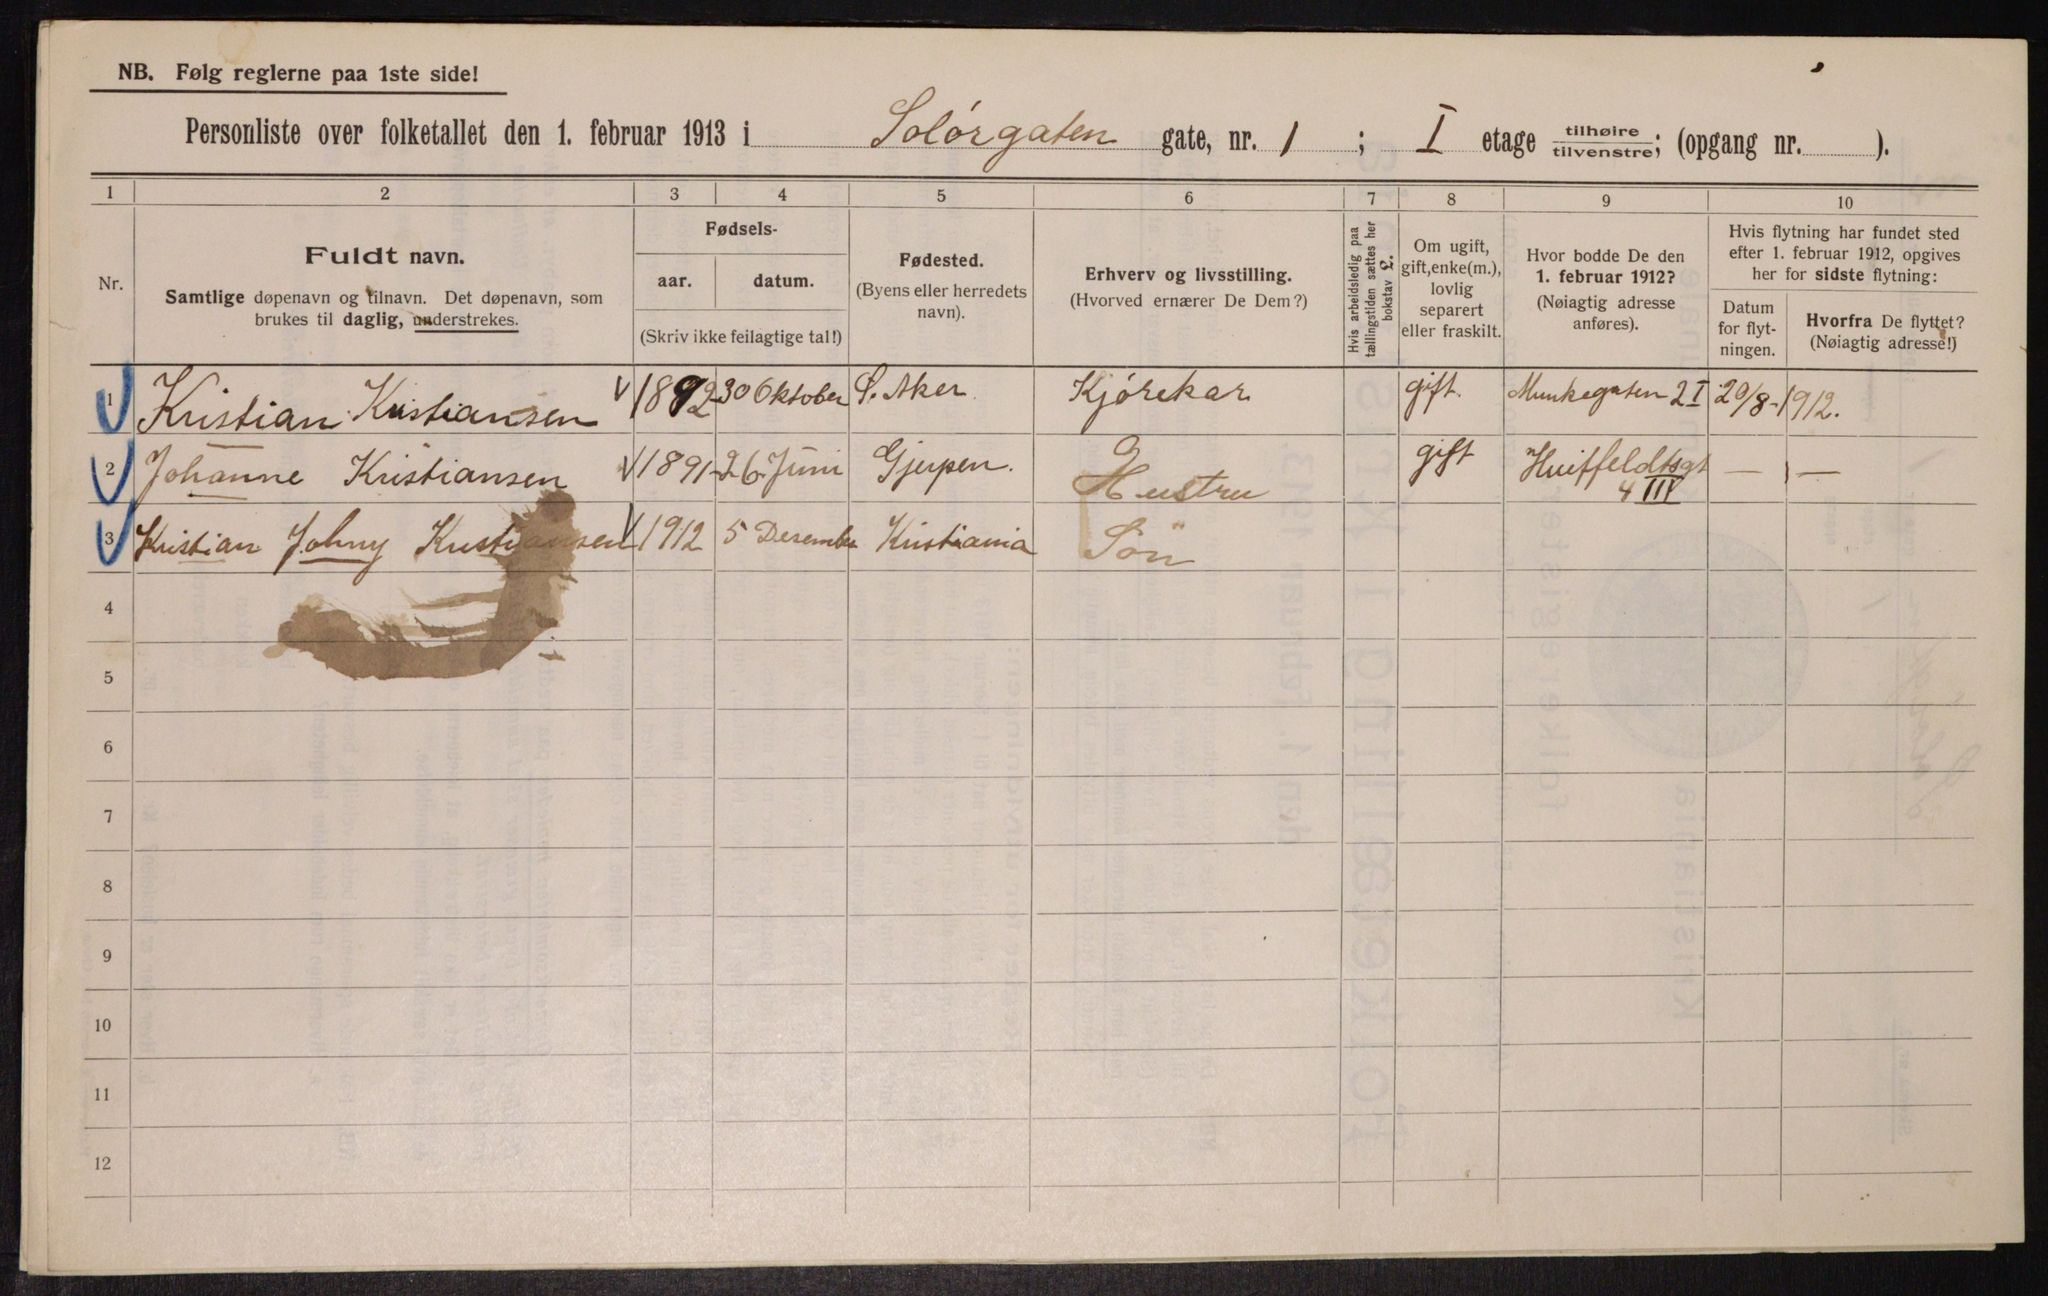 NB. Følg reglerne paa 1ste side!
Personliste over folketallet den 1. februar 1913 i Solørgaten gate, nr. 1 ; I etage tilhøire/tilvenstre; (opgang nr. ).
1 2 3 4 5 6 7 8 9 10
Nr.
Fuldt navn.
Samtlige døpenavn og tilnavn. Det døpenavn, som
brukes til daglig, understrekes.
Fødsels-
aar. datum.
(Skriv ikke feilagtige tal!)
Fødested.
(Byens eller herredets
navn).
Erhverv og livsstilling.
(Hvorved ernærer De Dem?)
Hvis arbeidsledig paa
tællingstiden sættes her
bokstav L.
Om ugift,
gift, enke(m.),
lovlig
separert
eller fraskilt.
Hvor bodde De den
1. februar 1912?
(Nøiagtig adresse
anføres).
Hvis flytning har fundet sted
efter 1. februar 1912, opgives
her for sidste flytning:
Datum
for flyt-
ningen.
Hvorfra De flyttet?
(Nøiagtig adresse!)
1 Kristian Kristiansen 1892 30 Oktober S. Aker Kjørekar gift. Munkegaten 2 I 20/8-1912.
2 Johanne Kristiansen 1891 26 Juni Gjerpen. Hustru gift Huitfeldtsgt — 1 —
4 III
3 Kristian Johny Kristiansen 1912 5 Desember Kristiania Søn
4
5
6
7
8
9
10
11
12